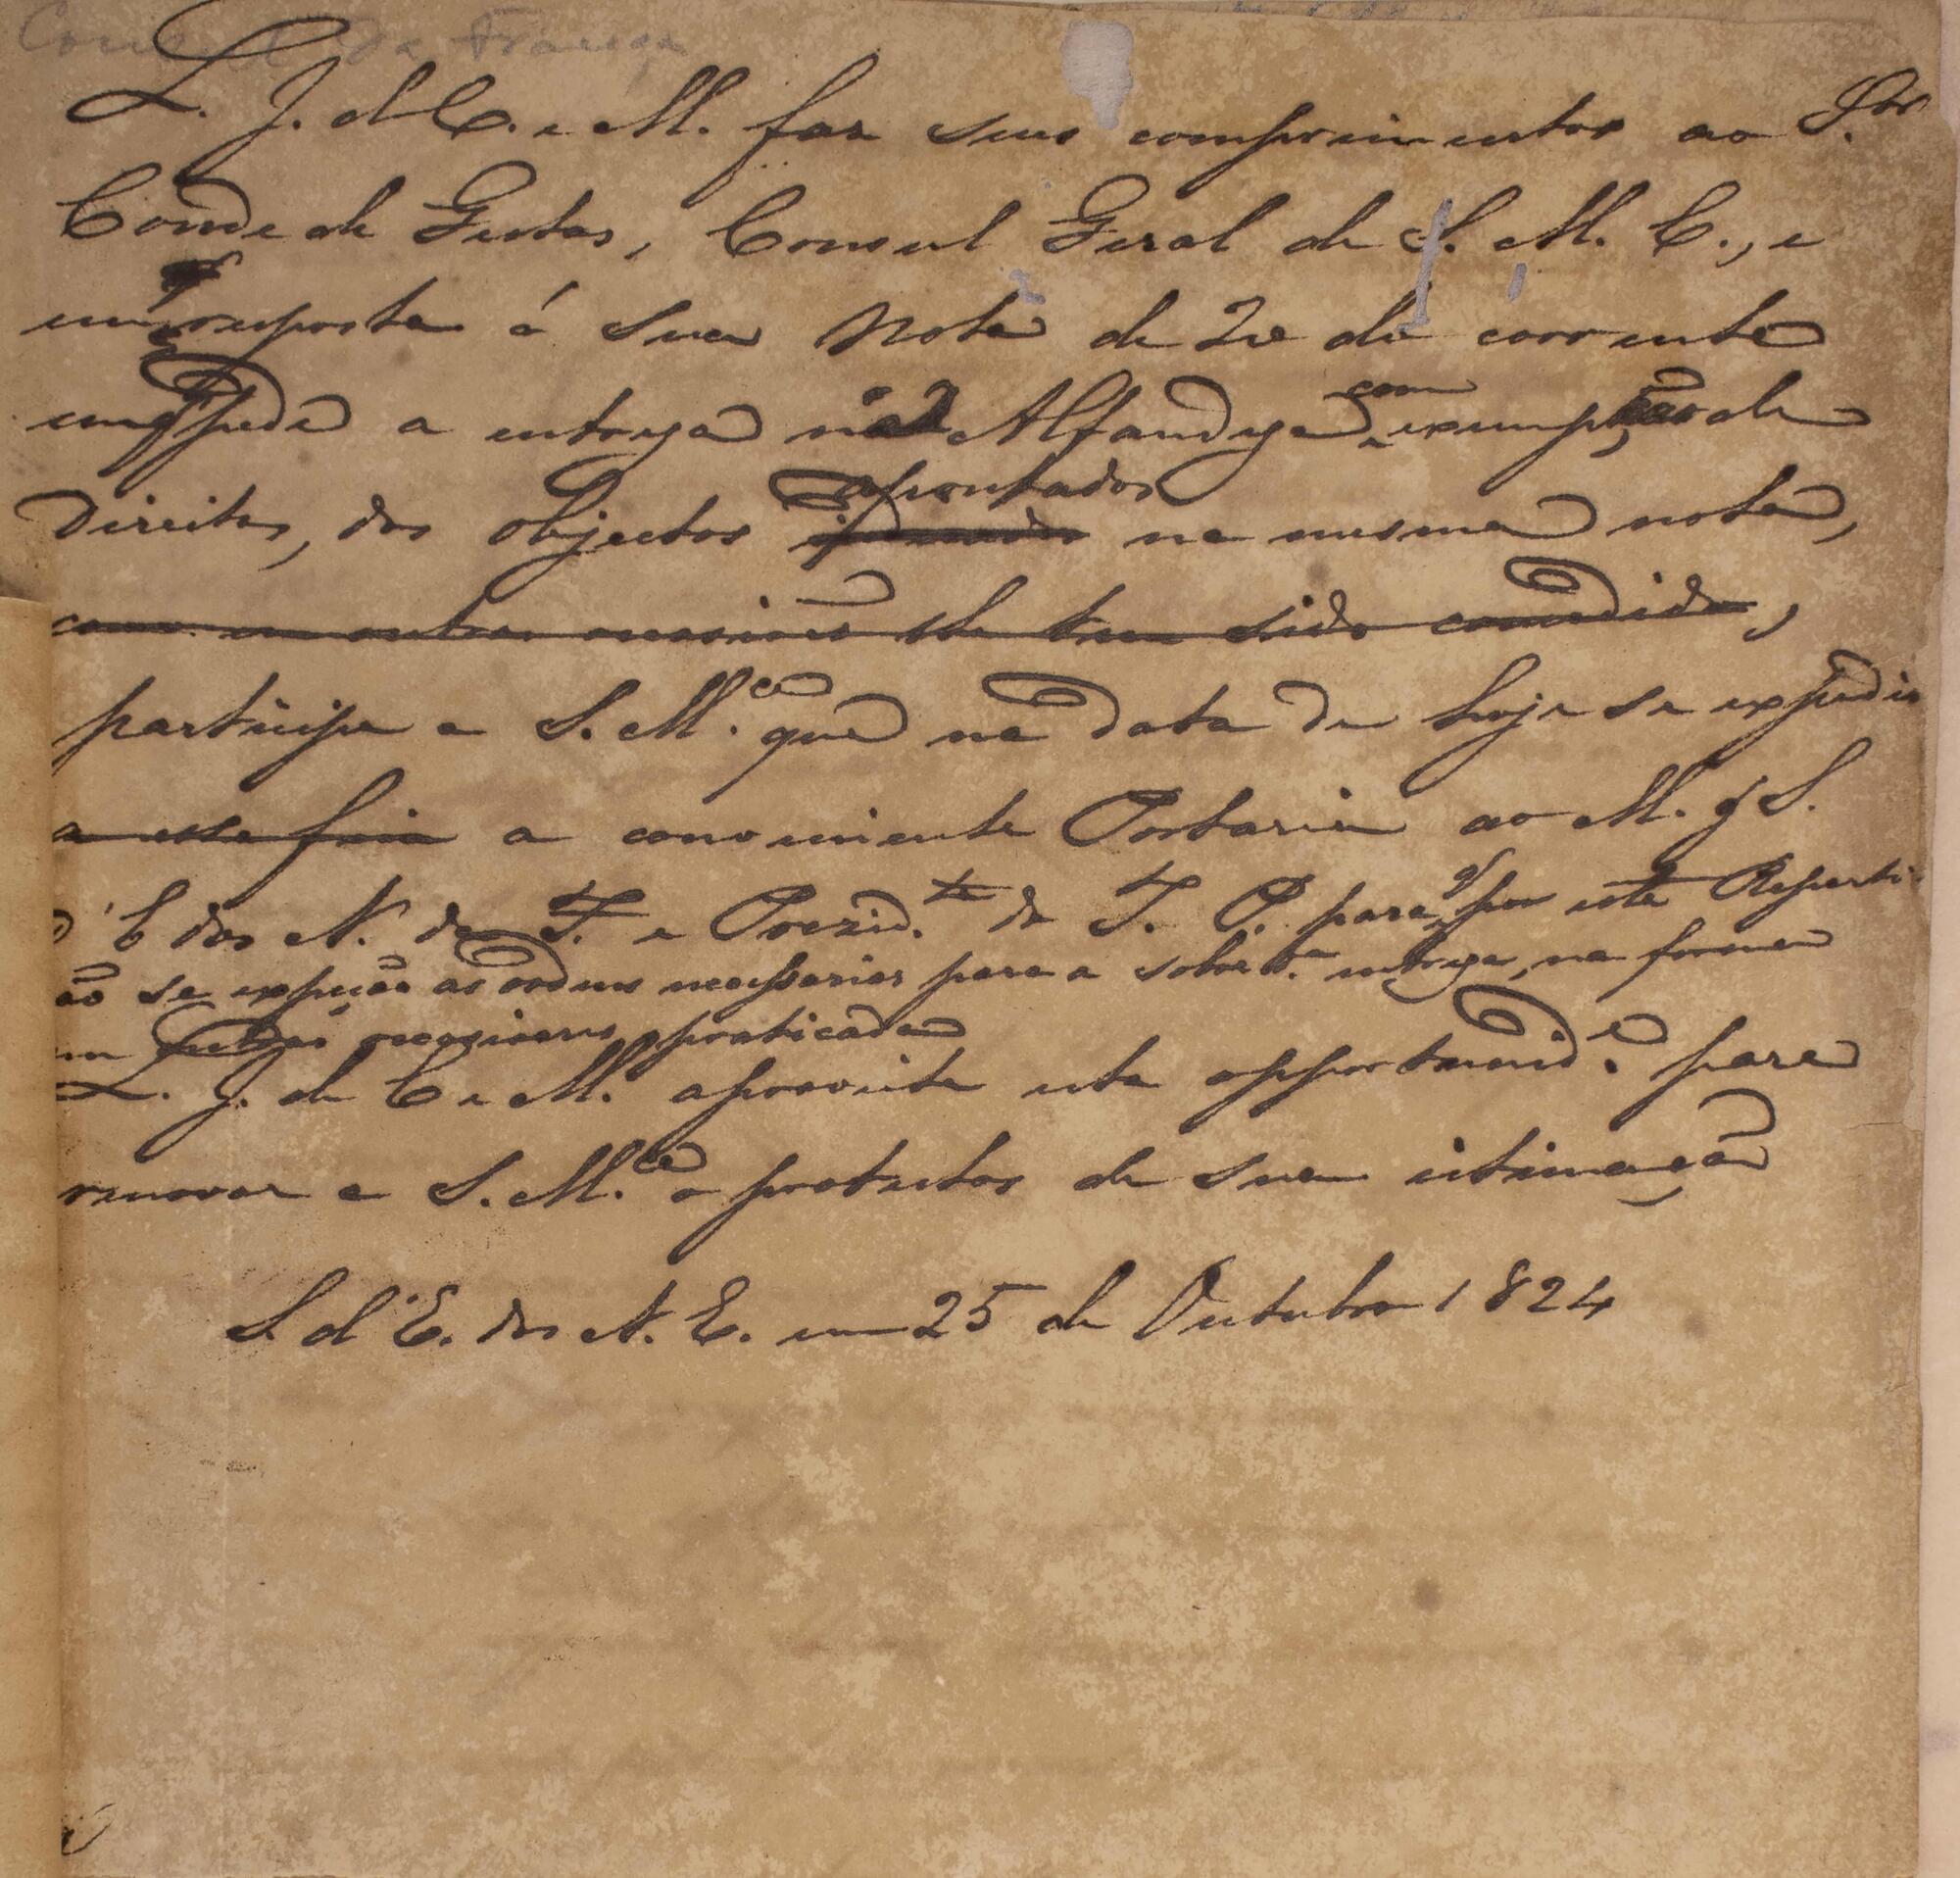 Consul da França
L. J. de C. e M. faz seus comprimentos ao Sr.
Conde de Gestas, Consul Geral de S. M. C., e
em resposta á sua Nota de do corrente
em q pede a entrega na Alfandega com exempção de
direitos, dos objectos apontados na mesma nota,
como em outras occasiões se tem sido concedido,
participa a S. M.ce que na data de hoje se expedio
a esse fim a conveniente Portaria ao M. e S.
d'E dos N. da F. e Prezid.te do T. P. para q por esta Reparti-
ão se expeção as ordens necessarias para a sobred.a entrega, na forma
em outras occasioens praticada
L. J. de C. e M. aproveita esta opportunid.e para
renovar a S. M.ce o protestos de sua estimação
S. d'E. dos N. E. em 25 de Outubro 1824